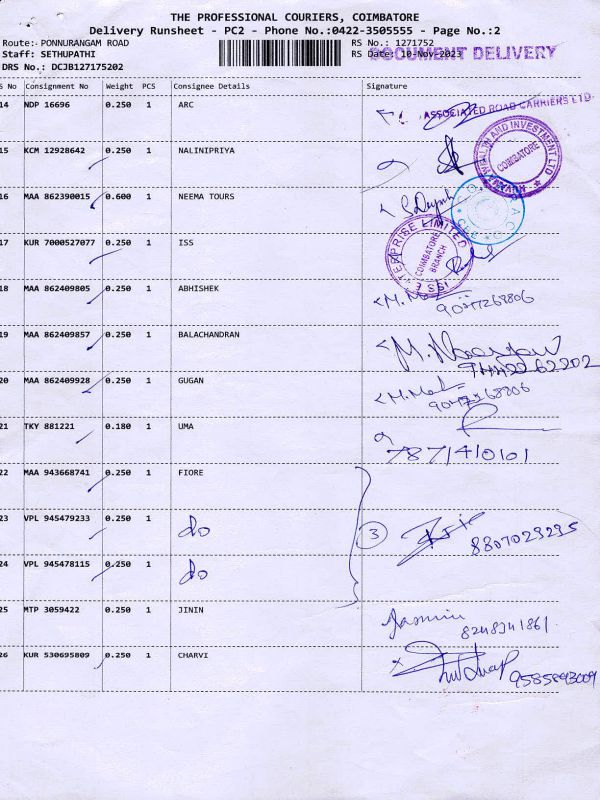 THE PROFESSIONAL COURIERS, COIMBATORE
Delivery Runsheet - PC2 - Phone No.:0422-3505555 - Page No.:2
Route: PONNURANGAM ROAD RS No.: 1271752
Staff: SETHUPATHI RS Date: 10-Nov-2023
DOCUMENT DELIVERY
DRS No.: DCJB127175202
S No Consignment No Weight PCS Consignee Details Signature
14 NDP 16696 0.250 1 ARC
ASSOCIATED ROAD CARRIERS LTD
15 KCM 12928642 0.250 1 NALINIPRIYA
WEALTH AND INVESTMENT LTD
COIMBATORE
16 MAA 862390015 0.600 1 NEEMA TOURS
17 KUR 7000527077 0.250 1 ISS
ISS ENTERPRISE LIMITED
COIMBATORE
BRANCH
18 MAA 862409805 0.250 1 ABHISHEK
19 MAA 862409857 0.250 1 BALACHANDRAN
20 MAA 862409928 0.250 1 GUGAN
21 TKY 881221 0.180 1 UMA
22 MAA 943668741 0.250 1 FIORE
23 VPL 945479233 0.250 1 do
3 8807029295
24 VPL 945478115 0.250 1 do
25 MTP 3059422 0.250 1 JININ
Jasmini
8248341861
26 KUR 530695809 0.250 1 CHARVI